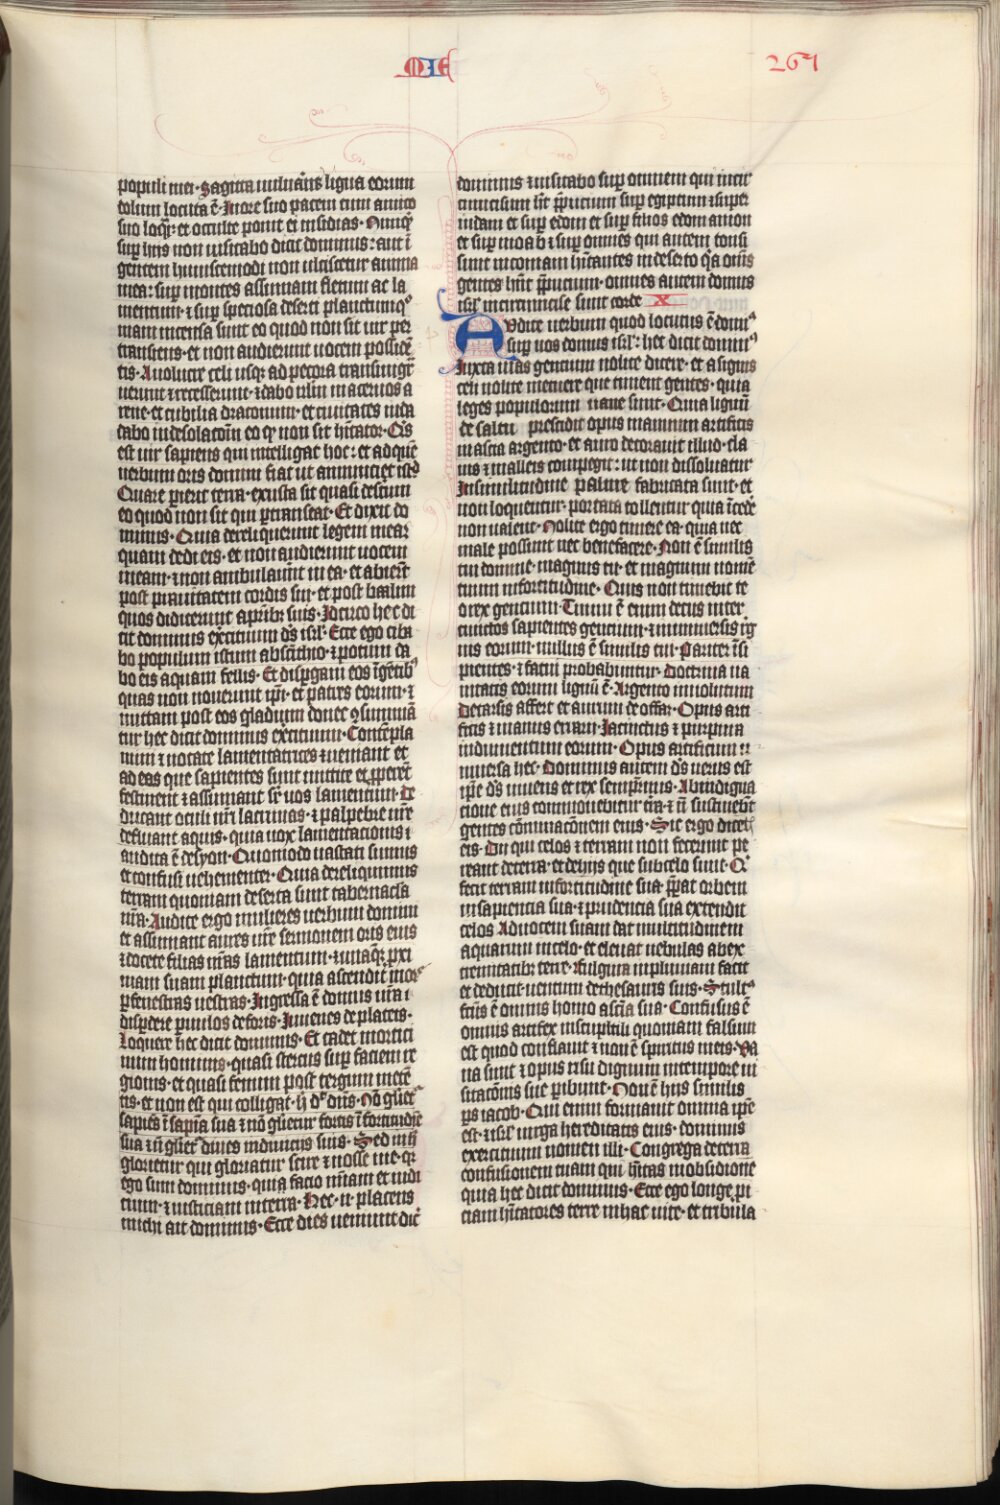 MIE
261
populi mei · Sagitta vulnerans ligua eorum
dolum locuta ē · In ore suo pacem cum amico
suo loqr̄ : et occulte ponit ei insidias · Nūqͥ
sup hiis non visitabo dicit dominus : aut ī
gentem huiuscemodi non ulciscetur anima
mea : sup montes assumam fletum ac la
mentum · ⁊ sup speciosa deserti planctum qͦ
niam incensa sunt eo quod non sit vir per
transiens · et non audierunt vocem possidē
tis · A volucre celi usqꝫ ad pecora transmigr̄
uerunt ⁊ recesserunt · ⁊ dabo irlm in aceruos a
rene · et cubilia draconum · et ciuitates iuda
dabo in desolacoīn eo qͦ non sit hītator · Qis
est vir sapiens qui intelligat hoc : et ad quē
verbum oris domini fiat ut annunciet istd̄
Quare perierit terra · exusta sit quasi desertum
eo quod non sit qui ptranseat · Et dixit do
minus · Quia dereliquerunt legem meam
quam dedi eis · et non audierunt vocem
meam · ⁊ non ambulauūt in ea · et abierūt
post prauitatem cordis sui · et post baalim
quos didicerunt a prībꝫ suis · Idcirco hec di
cit dominus exercituum ds̄ isrl̄ · Ecce ego ciba
bo populum istum absīthio · ⁊ potum da
bo eis aquam fellis · Et dispergam eos ī gētibꝫ
quas non nouerunt ipi · et patres eorum · ⁊
mittam post eos gladium donec ꝯsumma
tur hec dicit dominus exercituum · Contēpla
mini ⁊ vocate lamentatrices ⁊ veniant et
ad eas que sapientes sunt mittite et pperēt
festinent ⁊ assumant sr̄ vos lamentum · De
ducant oculi nr̄i lacrimas · ⁊ palpebre nr̄e
defluant aquis · quia vox lamentacionis ī
audita ē de syon · Quomodo vastati sumus
et confusi vehementer · Quia dereliquimus
terram quoniam deserta sunt tabernacla
nr̄a · Audite ergo mulieres verbum domini
et assumant aures vr̄e sermonem oris eius
⁊ docete filias vr̄as lamentum · ⁊ unaqꝫqꝫ pxi
mam suam planctum · quia ascendit mors
p fenestras vestras · Ingressa ē domus vr̄a ī
dispdere puulos de foris · Iuuenes de plateis ·
Loquere hec dicit dominus · Et cadet mortici
num hominis · quasi stercus sup faciem re
gionis · et quasi fenum post tergum mete
tis · et non est qui colligat · h̄ dͭ dn̄s · Nō gl̄iet᷑
sapiēs ī sapīa sua ⁊ nō gl̄ietur fortis ī fortitudīe
sua ⁊ n̄ gl̄iet᷑ diues in diuiciis suis · Sed in h̄
glorietur qui gloriatur scire ⁊ nosse me · qꝛ
ego sum dominus · quia facio mīam et iudi
cium · ⁊ iusticiam in terra · Hec · n̄ placent
michi ait dominus · Ecce dies veniunt dic̄
dominus ⁊ visitabo sup omnem qui incir
cumcisum h̄t pputium sup egiptum ⁊ super
iudam et sup edom et sup filios edom amon
et sup moab ⁊ sup omnes qui attonsi
sunt in comam hītantes in deserto qͣ om̄s
gentes hn̄t pputium · omnes autem domus
isrl̄ incircumcise sunt corde X
Audite verbum quod locutus ē domīꝰ
sup vos domus isrl̄ : hec dicit dominꝰ
Iuxta vias gentium nolite dicere · et a signis
celi nolite metuere que timent gentes · quia
leges populorum uane sunt · Quia lignū
de saltu prescidit opus manuum artificis
in ascia argento · et auro decorauit illud · cla
uis ⁊ malleis compegit : ut non dissoluatur
In similitudine palme fabricata sunt · et
non loquentur · portata tollentur quia īcedē
non valent · Nolite ergo timere ea · quia nec
male possunt nec bene facere · Non ē similis
tui domine · magnus tu · et magnum nomē
tuum in fortitudine · Quis non timebit te
o rex gentium · Tuum ē enim decus inter
cunctos sapientes gentium · ⁊ in uniuersis rg̅
nis eorum · nullus ē similis tui · Pariter īsi
pientes · ⁊ fatui probabuntur · Doctrina va
nitatis eorum lignū ē · Argento inuolutum
De tarsis affert · et aurum de offar · Opus arti
ficis ⁊ manus erarii · Iacinctus ⁊ purpura
indumentum eorum · Opus artificum u
niuersa hec · Dominus autem ds̄ verus est
ipe ds̄ viuens et rex sempitnus · Ab indigna
cione eius commouebitur tr̄a · ⁊ n̄ sustinebt
gentes cōminacōnem eius · Sic ergo dicet᷑
eis · Dii qui celos ⁊ terram non fecerunt pe
reant de terra · et de hiis que sub celo sunt · Qͥ
fecit terram in fortitudine sua · pparat orbem
in sapiencia sua · ⁊ prudencia sua extendit
celos Ad vocem suam dat multitudinem
aquarum in celo · et eleuat nebulas ab ex
tremitatibꝫ terre · Fulgura in pluuiam facit
et deducit ventum de thesauris suis · Stultꝰ
fcūs ē omnis homo a sciā sua · Confusus ē
omnis artifex in sculptili quoniam falsum
est quod conflauit ⁊ non ē spiritus in eis · Va
na sunt ⁊ opus risu dignum in tempore vi
sitacōnis sue pibunt · Non ē hiis similis
ps iacob · Qui enim formauit omnia ipē
est · ⁊ isrl̄ virga hereditatis eius · dominus
exercituum nomen illi · Congrega de terra
confusionem tuam qui hītas in obsidione
quia hec dicit dominus · Ecce ego longe pi
ciam hītatores terre in hac vice · et tribula